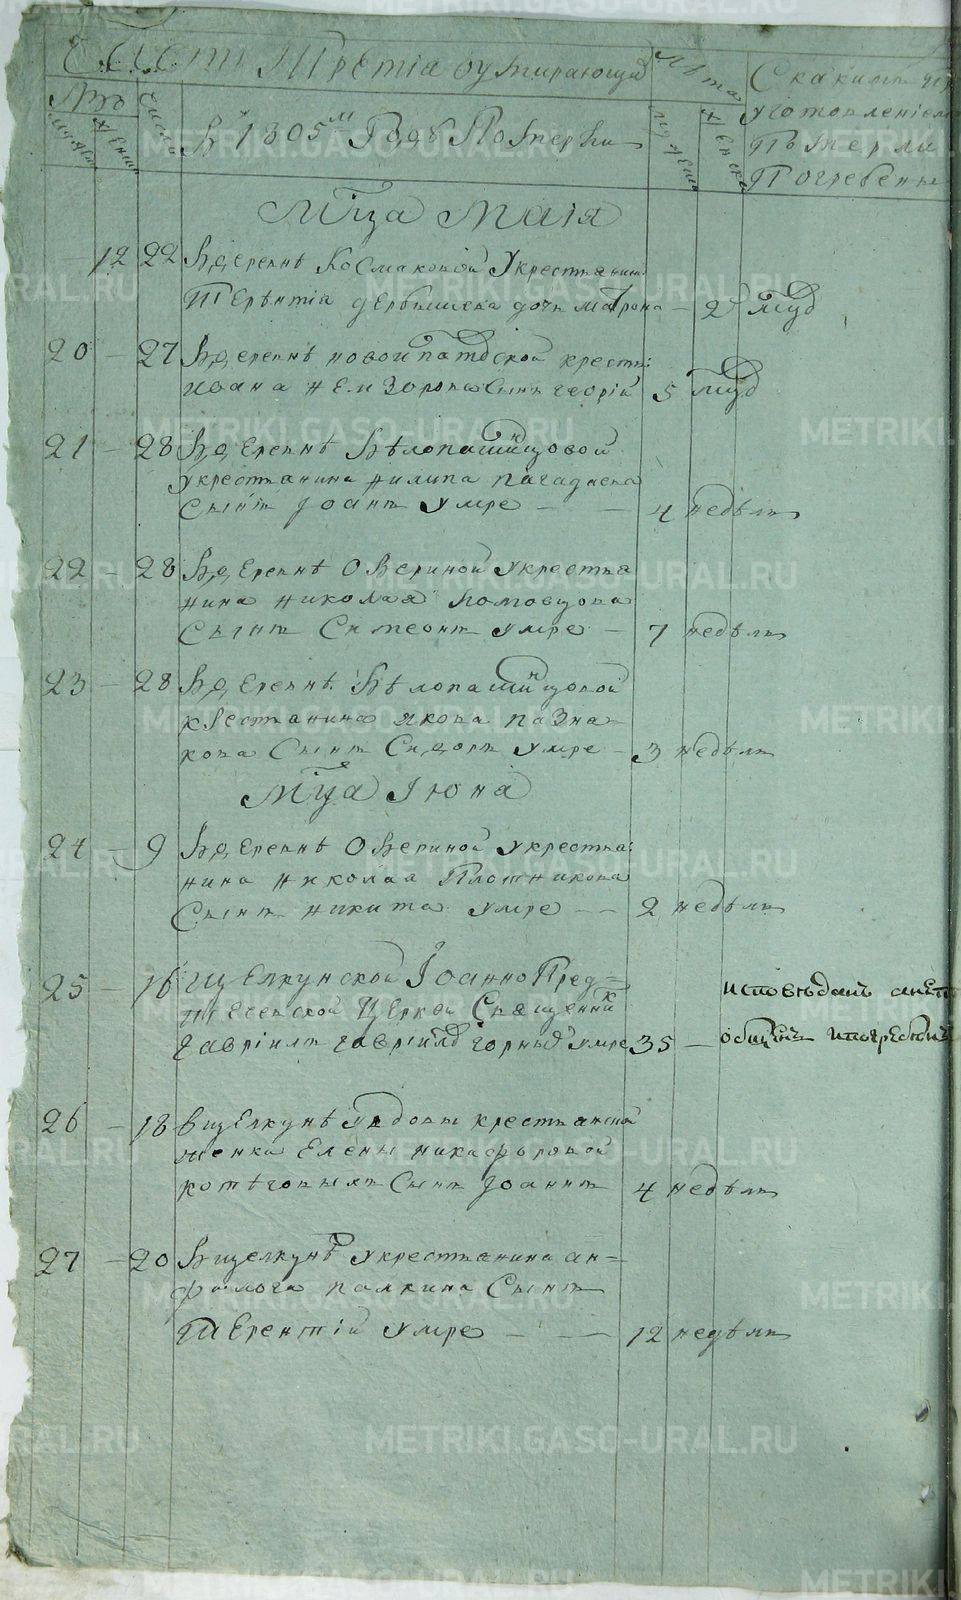 Часть Третїа о умирающих
Лѣта
Скакимъ
Число
уготовленїем
в 1805м Годѣ Померли
Померли
Погребены
Мца Маія
12 22 В деревнѣ Космаковой У крестьанина
Терѣнтіа дочь Матрона — 2 год
20 — 27 В деревнѣ новоипатовской крестьа:
Ивана Немзорова Сынъ Георгій 5 год
21 — 28 В деревнѣ Бѣлопашинцовой
у крестьанина Филипа
Сынъ Іоанъ Умре — — 4 недѣль
22 — 28 В деревнѣ Овериной У крестьа
нина Николая
Сынъ Симеонъ умре — 7 недѣль
23 — 28 В деревнѣ Бѣлопашинцовой
крестьанина Якова Пазна-
кова Сынъ Сидоръ Умре — 3 недѣль
Мца Іюна
24 — 9 В деревнѣ Овериной У крестьа:
нина Николаа Плотникова
Сынъ Никита умре — — 2 недѣль
25 — 16 Щелкунской Іоанно Пред-
течевской Церкви Священникъ
Гавріилъ Гавріиловъ Горныхъ умре 35 — исповѣданъ
26 — 18 В Щелкунѣ У вдовы крестьанской
женки Елены Никифоровой
Сынъ Іоаннъ 4 недѣль
27 — 20 В Щелкунѣ У крестьанина Ан-
фалога Палкина Сынъ
Терентій Умре — — 12 недѣль
METRIKI.GASO-URAL.RU